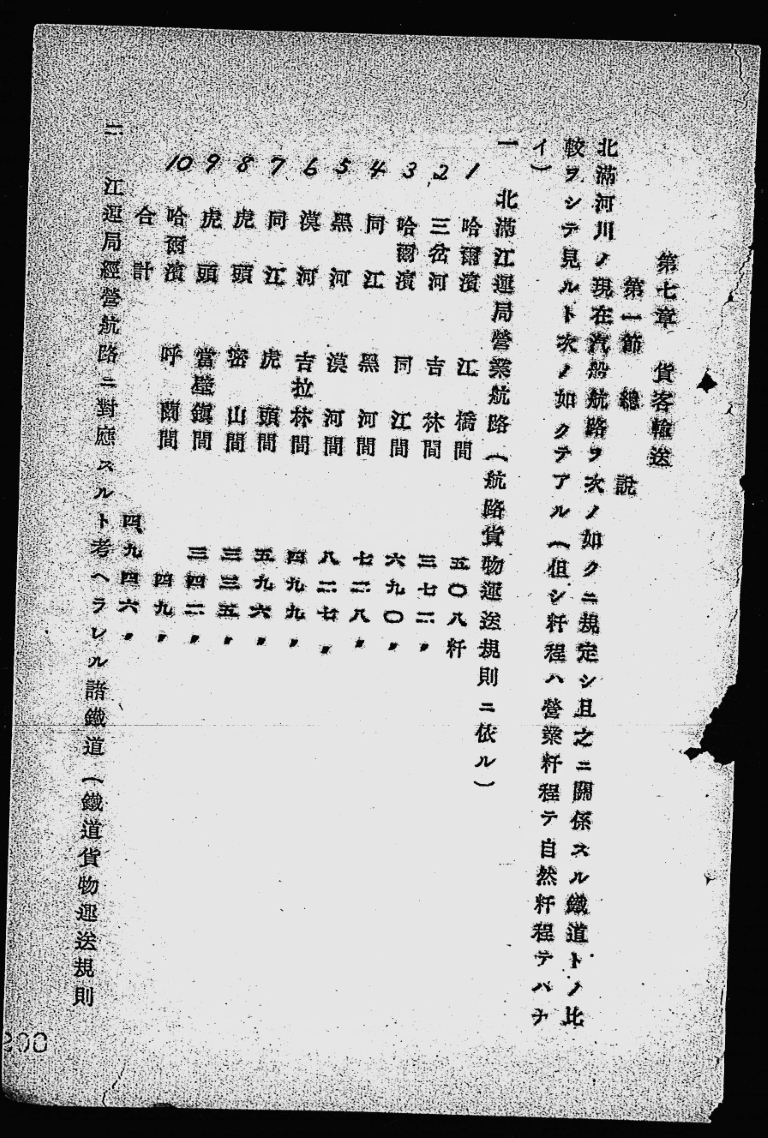 第七章 貨客輸送
第一節 總說
北滿河川ノ現在汽船航路ヲ次ノ如クニ規定シ且之ニ關係スル鐵道トノ比
較ヲシテ見ルト次ノ如クテアル(但シ粁程ハ營業粁程テ自然粁程テハナ
イ)
一 北滿江運局營業航路(航路貨物運送規則ニ依ル)
1 哈爾濱 江橋間 五〇八粁
2 三岔河 吉林間 三七二〃
3 哈爾濱 同江間 六九〇〃
4 同江 黑河間 七二八〃
5 黑河 漠河間 八二七〃
6 漠河 吉拉林間 四九九〃
7 同江 虎頭間 五九六〃
8 虎頭 密山間 三三五〃
9 虎頭 當壁鎭間 三四二〃
10 哈爾濱 呼蘭間 四九〃
合計 四九四六〃
二 江運局經營航路ニ對應スルト考ヘラレル諸鐵道(鐵道貨物運送規則
200